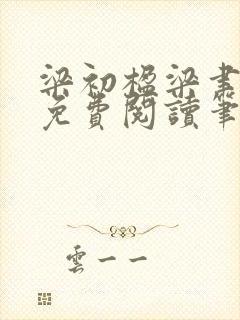 梁初楹梁書
免費閱讀筆
雲一一